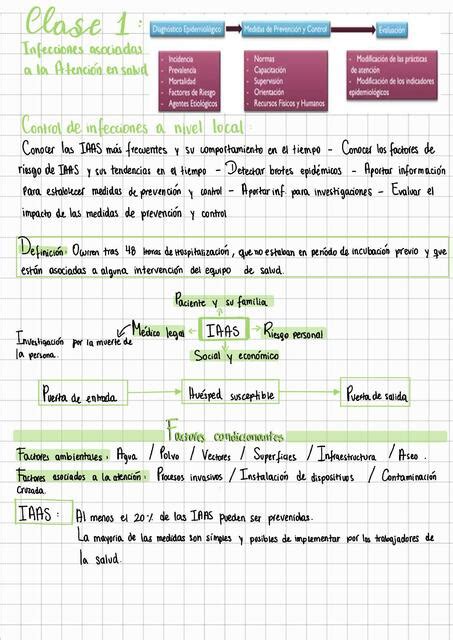 Clase 1:
Infecciones asociadas
a la Atención en salud
Diagnóstico Epidemiológico
Medidas de Prevención y Control
Evaluación
- Incidencia
- Prevalencia
- Mortalidad
- Factores de Riesgo
- Agentes Etiológicos
- Normas
- Capacitación
- Supervisión
- Orientación
- Recursos Físicos y Humanos
- Modificación de las prácticas
de atención
- Modificación de los indicadores
epidemiológicos
Control de infecciones a nivel local:
Conocer las IAAS más frecuentes y su comportamiento en el tiempo - Conocer los factores de
riesgo de IAAS y sus tendencias en el tiempo - Detectar brotes epidémicos - Aportar información
Para establecer medidas de prevención y control - Aportar inf. para investigaciones - Evaluar el
impacto de las medidas de prevención y control
Definición: Ocurren tras 48 Horas de Hospitalización, que no estaban en período de incubación previo y que
están asociadas a alguna intervención del equipo de salud.
Paciente y su familia
Médico legal
IAAS
Riesgo personal
Investigación por la muerte de
la persona.
Social y económico
Puerta de entrada
Huésped susceptible
Puerta de salida
Factores condicionantes
Factores ambientales: Agua / Polvo / Vectores / Superficies / Infraestructura / Aseo.
Factores asociados a la atención: Procesos invasivos / Instalación de dispositivos / Contaminación
Cruzada.
IAAS: Al menos el 20% de las IAAS pueden ser prevenidas.
La mayoría de las medidas son simples y posibles de implementar por los trabajadores de
la salud.